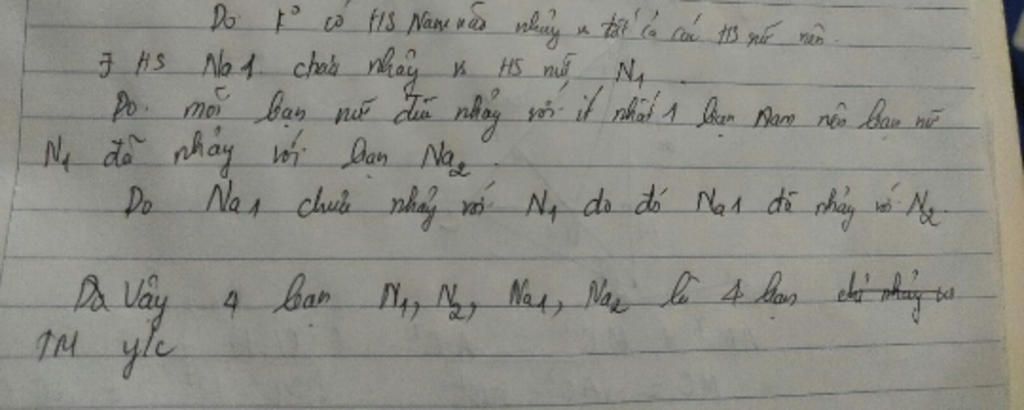 Do k° có HS Nam nào nhảy vs tất cả các HS nữ nên.
∃ HS Na1 chưa nhảy vs HS nữ N1.
Do. mỗi bạn nữ đều nhảy với ít nhất 1 bạn Nam nên bạn nữ
N1 đã nhảy với bạn Na2.
Do Na1 chưa nhảy với N1 do đó Na1 đã nhảy với N2.
Vậy 4 bạn N1, N2, Na1, Na2 là 4 bạn
TM y/c